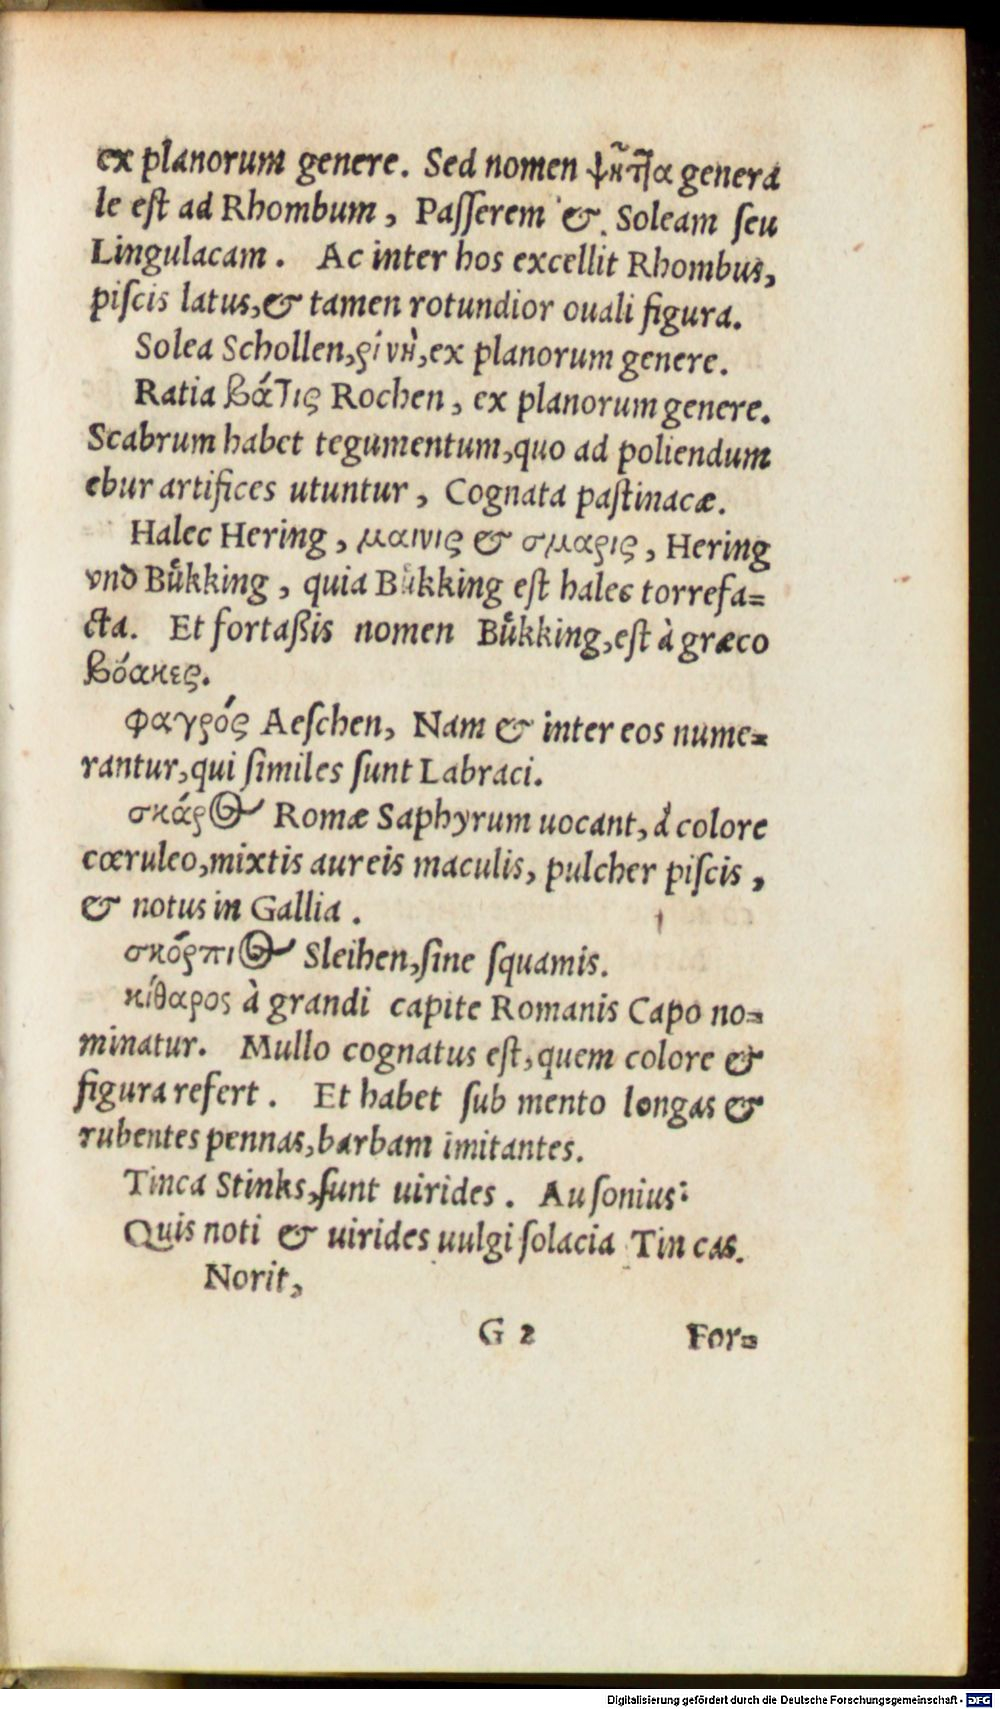 ex planorum genere. Sed nomen ψῆττα genera
le est ad Rhombum, Paſſerem &. Soleam ſeu
Lingulacam. Ac inter hos excellit Rhombus,
piſcis latus,& tamen rotundior ouali figura.
Solea Schollen,ῥίνὴ,ex planorum genere.
Ratia βάτις Rochen, ex planorum genere.
Scabrum habet tegumentum,quo ad poliendum
ebur artifices utuntur, Cognata paſtinacæ.
Halec Hering, μαινις & σμαρις, Hering
vnd Bůkking, quia Bůkking eſt halec torrefa=
cta. Et fortaßis nomen Bůkking,eſt à græco
βόακες.
φαγρός Aeſchen, Nam & inter eos nume=
rantur,qui ſimiles ſunt Labraci.
σκάρος Romæ Saphyrum uocant, à colore
cœruleo,mixtis aureis maculis, pulcher piſcis,
& notus in Gallia.
σκόρπιος Sleihen,ſine ſquamis.
κίθαρος à grandi capite Romanis Capo no=
minatur. Mullo cognatus eſt,quem colore &
figura refert. Et habet ſub mento longas &
rubentes pennas,barbam imitantes.
Tinca Stinks,ſunt uirides. Auſonius:
Quis noti & uirides uulgi ſolacia Tincas.
Norit,
G 2 For=
Digitalisierung gefördert durch die Deutsche Forschungsgemeinschaft - DFG